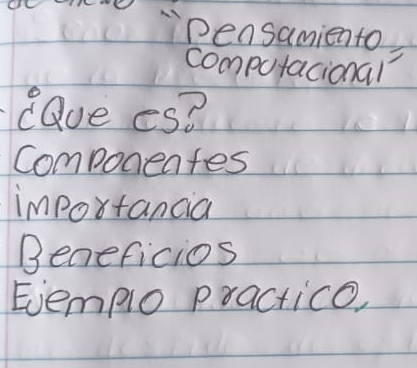 "Pensamiento
Computacional"
¿Que es?
Componentes
importancia
Beneficios
Ejemplo practico.